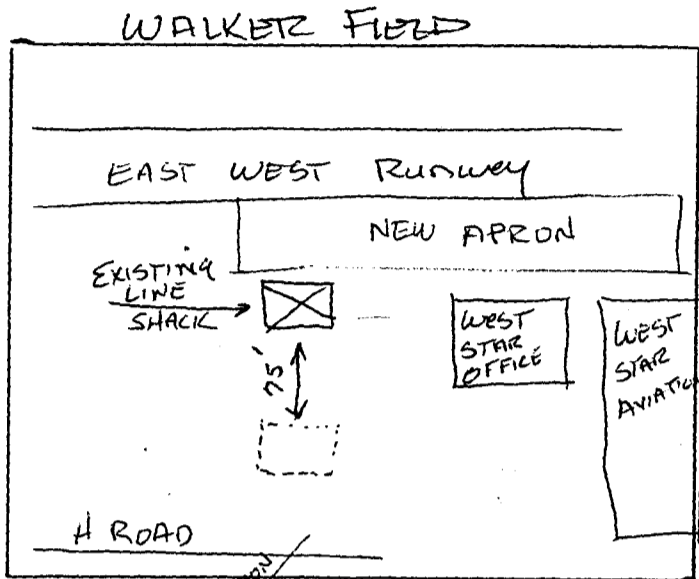 WALKER FIELD
EAST WEST Runway
NEW APRON
EXISTING
LINE
SHACK
WEST
STAR
OFFICE
WEST
STAR
AVIATION
75'
H ROAD